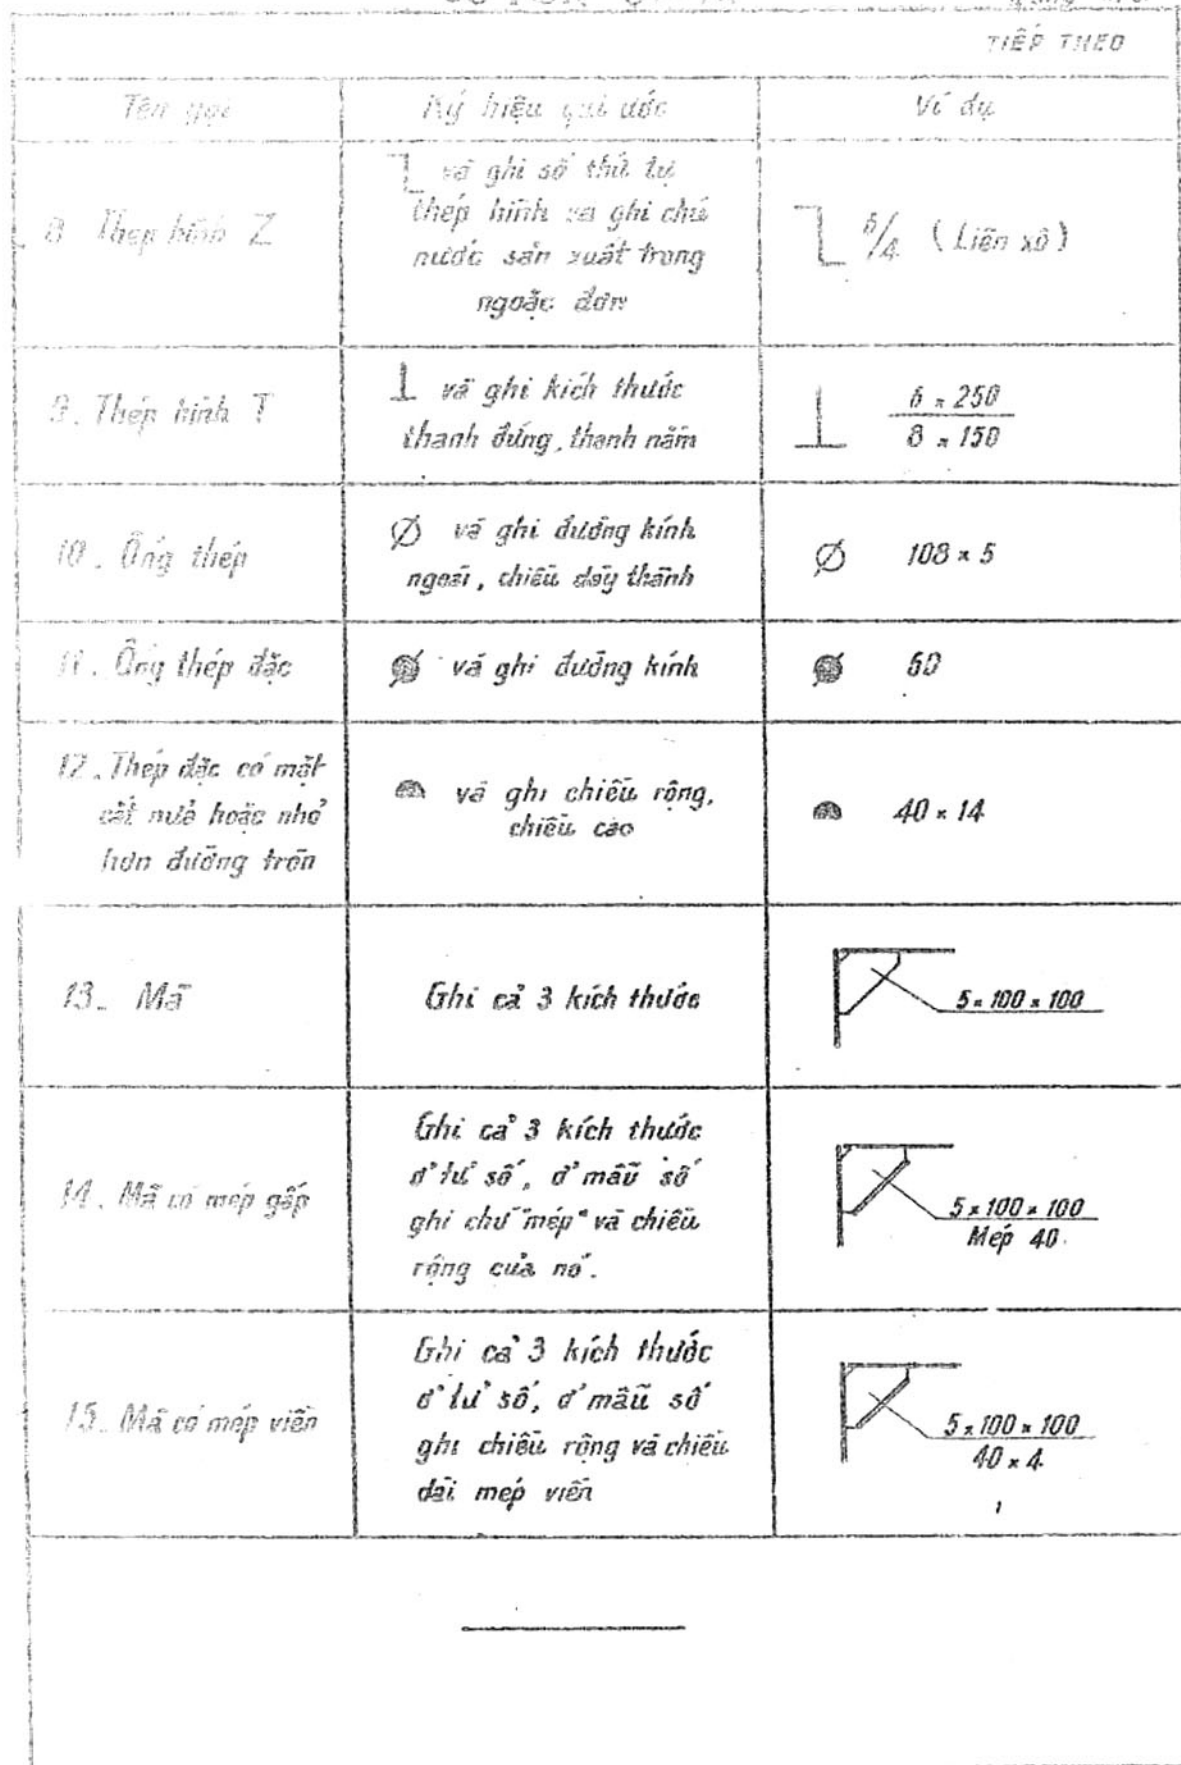 TIẾP THEO
Tên gọi
Ký hiệu qui ước
Ví dụ
8 Thép hình Z
và ghi số thứ tự
thép hình và ghi chú
nước sản xuất trong
ngoặc đơn
(Liên xô)
9. Thép hình T
⊥ và ghi kích thước
thanh đứng, thanh nằm
⊥ 6 × 250
8 × 150
10. Ống thép
∅ và ghi đường kính
ngoài, chiều dày thành
∅ 108 × 5
11. Ống thép đặc
và ghi đường kính
60
12. Thép đặc có mặt
cắt nửa hoặc nhỏ
hơn đường tròn
và ghi chiều rộng,
chiều cao
40 × 14
13. Mã
Ghi cả 3 kích thước
5 × 100 × 100
14. Mã có mép gấp
Ghi cả 3 kích thước
ở tử số, ở mẫu số
ghi chữ "mép" và chiều
rộng của nó.
5 × 100 × 100
Mép 40
15. Mã có mép viền
Ghi cả 3 kích thước
ở tử số, ở mẫu số
ghi chiều rộng và chiều
dài mép viền
5 × 100 × 100
40 × 4